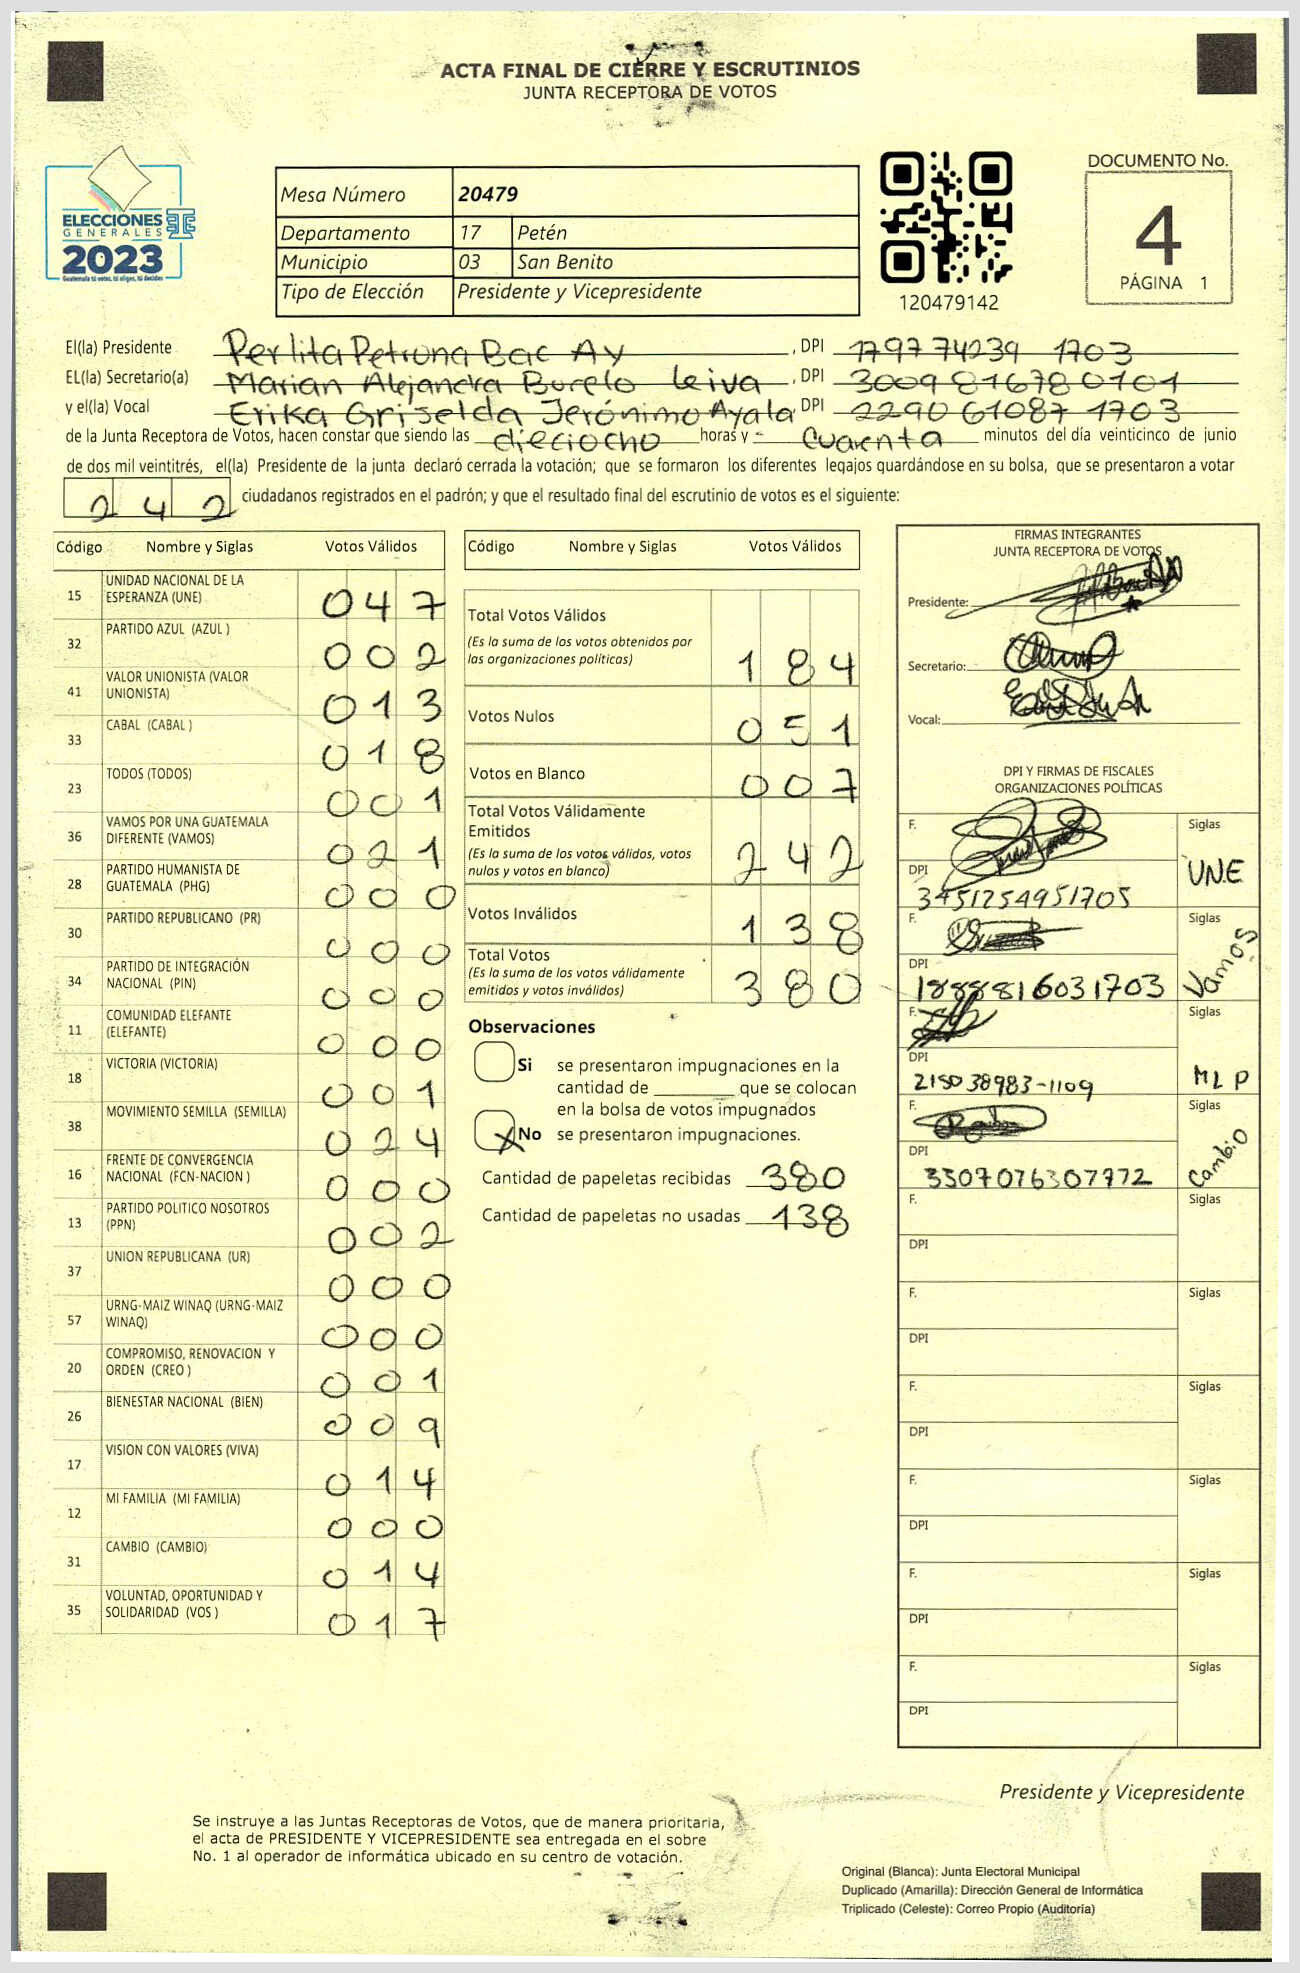 ACTA FINAL DE CIERRE Y ESCRUTINIOS
JUNTA RECEPTORA DE VOTOS
ELECCIONES
GENERALES
2023
Guatemala tú votas, tú eliges, tú decides
Mesa Número 20479
Departamento 17 Petén
Municipio 03 San Benito
Tipo de Elección Presidente y Vicepresidente
120479142
DOCUMENTO No.
4
PÁGINA 1
El(la) Presidente Perlita Petrona Bac Ay, DPI 179774239 1703
EL(la) Secretario(a) Marian Alejandra Burelo Leiva, DPI 3009816780101
y el(la) Vocal Erika Griselda Jerónimo Ayala, DPI 2290 61087 1703
de la Junta Receptora de Votos, hacen constar que siendo las dieciocho horas y cuarenta minutos del día veinticinco de junio
de dos mil veintitrés, el(la) Presidente de la junta declaró cerrada la votación; que se formaron los diferentes legajos guardándose en su bolsa, que se presentaron a votar
242 ciudadanos registrados en el padrón; y que el resultado final del escrutinio de votos es el siguiente:
Código Nombre y Siglas Votos Válidos
15 UNIDAD NACIONAL DE LA ESPERANZA (UNE) 047
32 PARTIDO AZUL (AZUL ) 002
41 VALOR UNIONISTA (VALOR UNIONISTA) 013
33 CABAL (CABAL ) 018
23 TODOS (TODOS) 001
36 VAMOS POR UNA GUATEMALA DIFERENTE (VAMOS) 021
28 PARTIDO HUMANISTA DE GUATEMALA (PHG) 000
30 PARTIDO REPUBLICANO (PR) 000
34 PARTIDO DE INTEGRACIÓN NACIONAL (PIN) 000
11 COMUNIDAD ELEFANTE (ELEFANTE) 000
18 VICTORIA (VICTORIA) 001
38 MOVIMIENTO SEMILLA (SEMILLA) 024
16 FRENTE DE CONVERGENCIA NACIONAL (FCN-NACION ) 000
13 PARTIDO POLITICO NOSOTROS (PPN) 002
37 UNION REPUBLICANA (UR) 000
57 URNG-MAIZ WINAQ (URNG-MAIZ WINAQ) 000
20 COMPROMISO, RENOVACION Y ORDEN (CREO ) 001
26 BIENESTAR NACIONAL (BIEN) 009
17 VISION CON VALORES (VIVA) 014
12 MI FAMILIA (MI FAMILIA) 000
31 CAMBIO (CAMBIO) 014
35 VOLUNTAD, OPORTUNIDAD Y SOLIDARIDAD (VOS ) 017
Código Nombre y Siglas Votos Válidos
Total Votos Válidos
(Es la suma de los votos obtenidos por
las organizaciones políticas) 184
Votos Nulos 051
Votos en Blanco 007
Total Votos Válidamente
Emitidos
(Es la suma de los votos válidos, votos
nulos y votos en blanco) 242
Votos Inválidos 138
Total Votos
(Es la suma de los votos válidamente
emitidos y votos inválidos) 380
Observaciones
Si se presentaron impugnaciones en la
cantidad de ________ que se colocan
en la bolsa de votos impugnados
X No se presentaron impugnaciones.
Cantidad de papeletas recibidas 380
Cantidad de papeletas no usadas 138
FIRMAS INTEGRANTES
JUNTA RECEPTORA DE VOTOS
Presidente:
Secretario:
Vocal:
DPI Y FIRMAS DE FISCALES
ORGANIZACIONES POLÍTICAS
F. Siglas
DPI 3451254951705 UNE
F. Siglas
DPI 1888816031703 Vamos
F. Siglas
DPI 215038983-1109 MLP
F. Siglas
DPI 3307076307772 Cambio
F. Siglas
DPI
F. Siglas
DPI
F. Siglas
DPI
F. Siglas
DPI
F. Siglas
DPI
F. Siglas
DPI
Presidente y Vicepresidente
Se instruye a las Juntas Receptoras de Votos, que de manera prioritaria,
el acta de PRESIDENTE Y VICEPRESIDENTE sea entregada en el sobre
No. 1 al operador de informática ubicado en su centro de votación.
Original (Blanca): Junta Electoral Municipal
Duplicado (Amarilla): Dirección General de Informática
Triplicado (Celeste): Correo Propio (Auditoría)